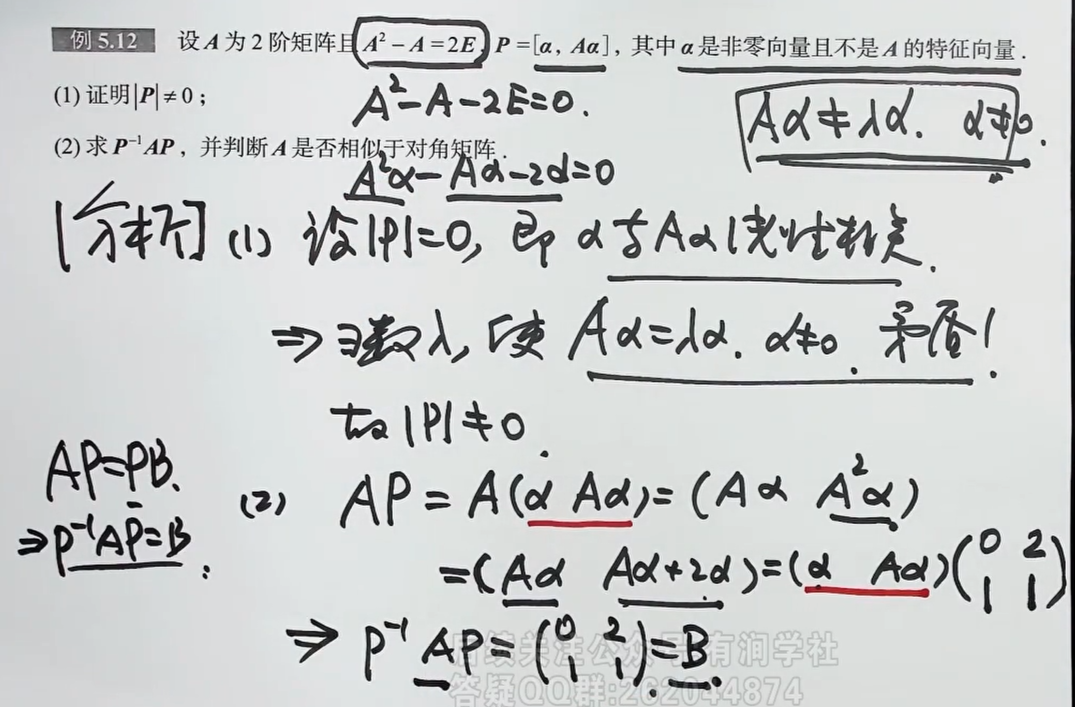 例 5.12 设 A 为 2 阶矩阵且 A² − A = 2E, P = [α, Aα], 其中 α 是非零向量且不是 A 的特征向量.
(1) 证明 |P| ≠ 0;
A²−A−2E=0.
Aα≠λα. α≠0.
(2) 求 P⁻¹AP, 并判断 A 是否相似于对角矩阵.
A²α−Aα−2α=0
[分析] (1) 设|P|=0, 即 α与Aα线性相关.
⇒ ∃数λ, 使 Aα=λα. α≠0. 矛盾!
故 |P|≠0.
AP=PB.
⇒P⁻¹AP=B.
(2) AP = A(α Aα)=(Aα A²α)
=(Aα Aα+2α)=(α Aα)(0 2
1 1)
⇒ P⁻¹AP=(0 2
1 1)=B.
后续关注公众号:有涧学社
答疑QQ群:262044874